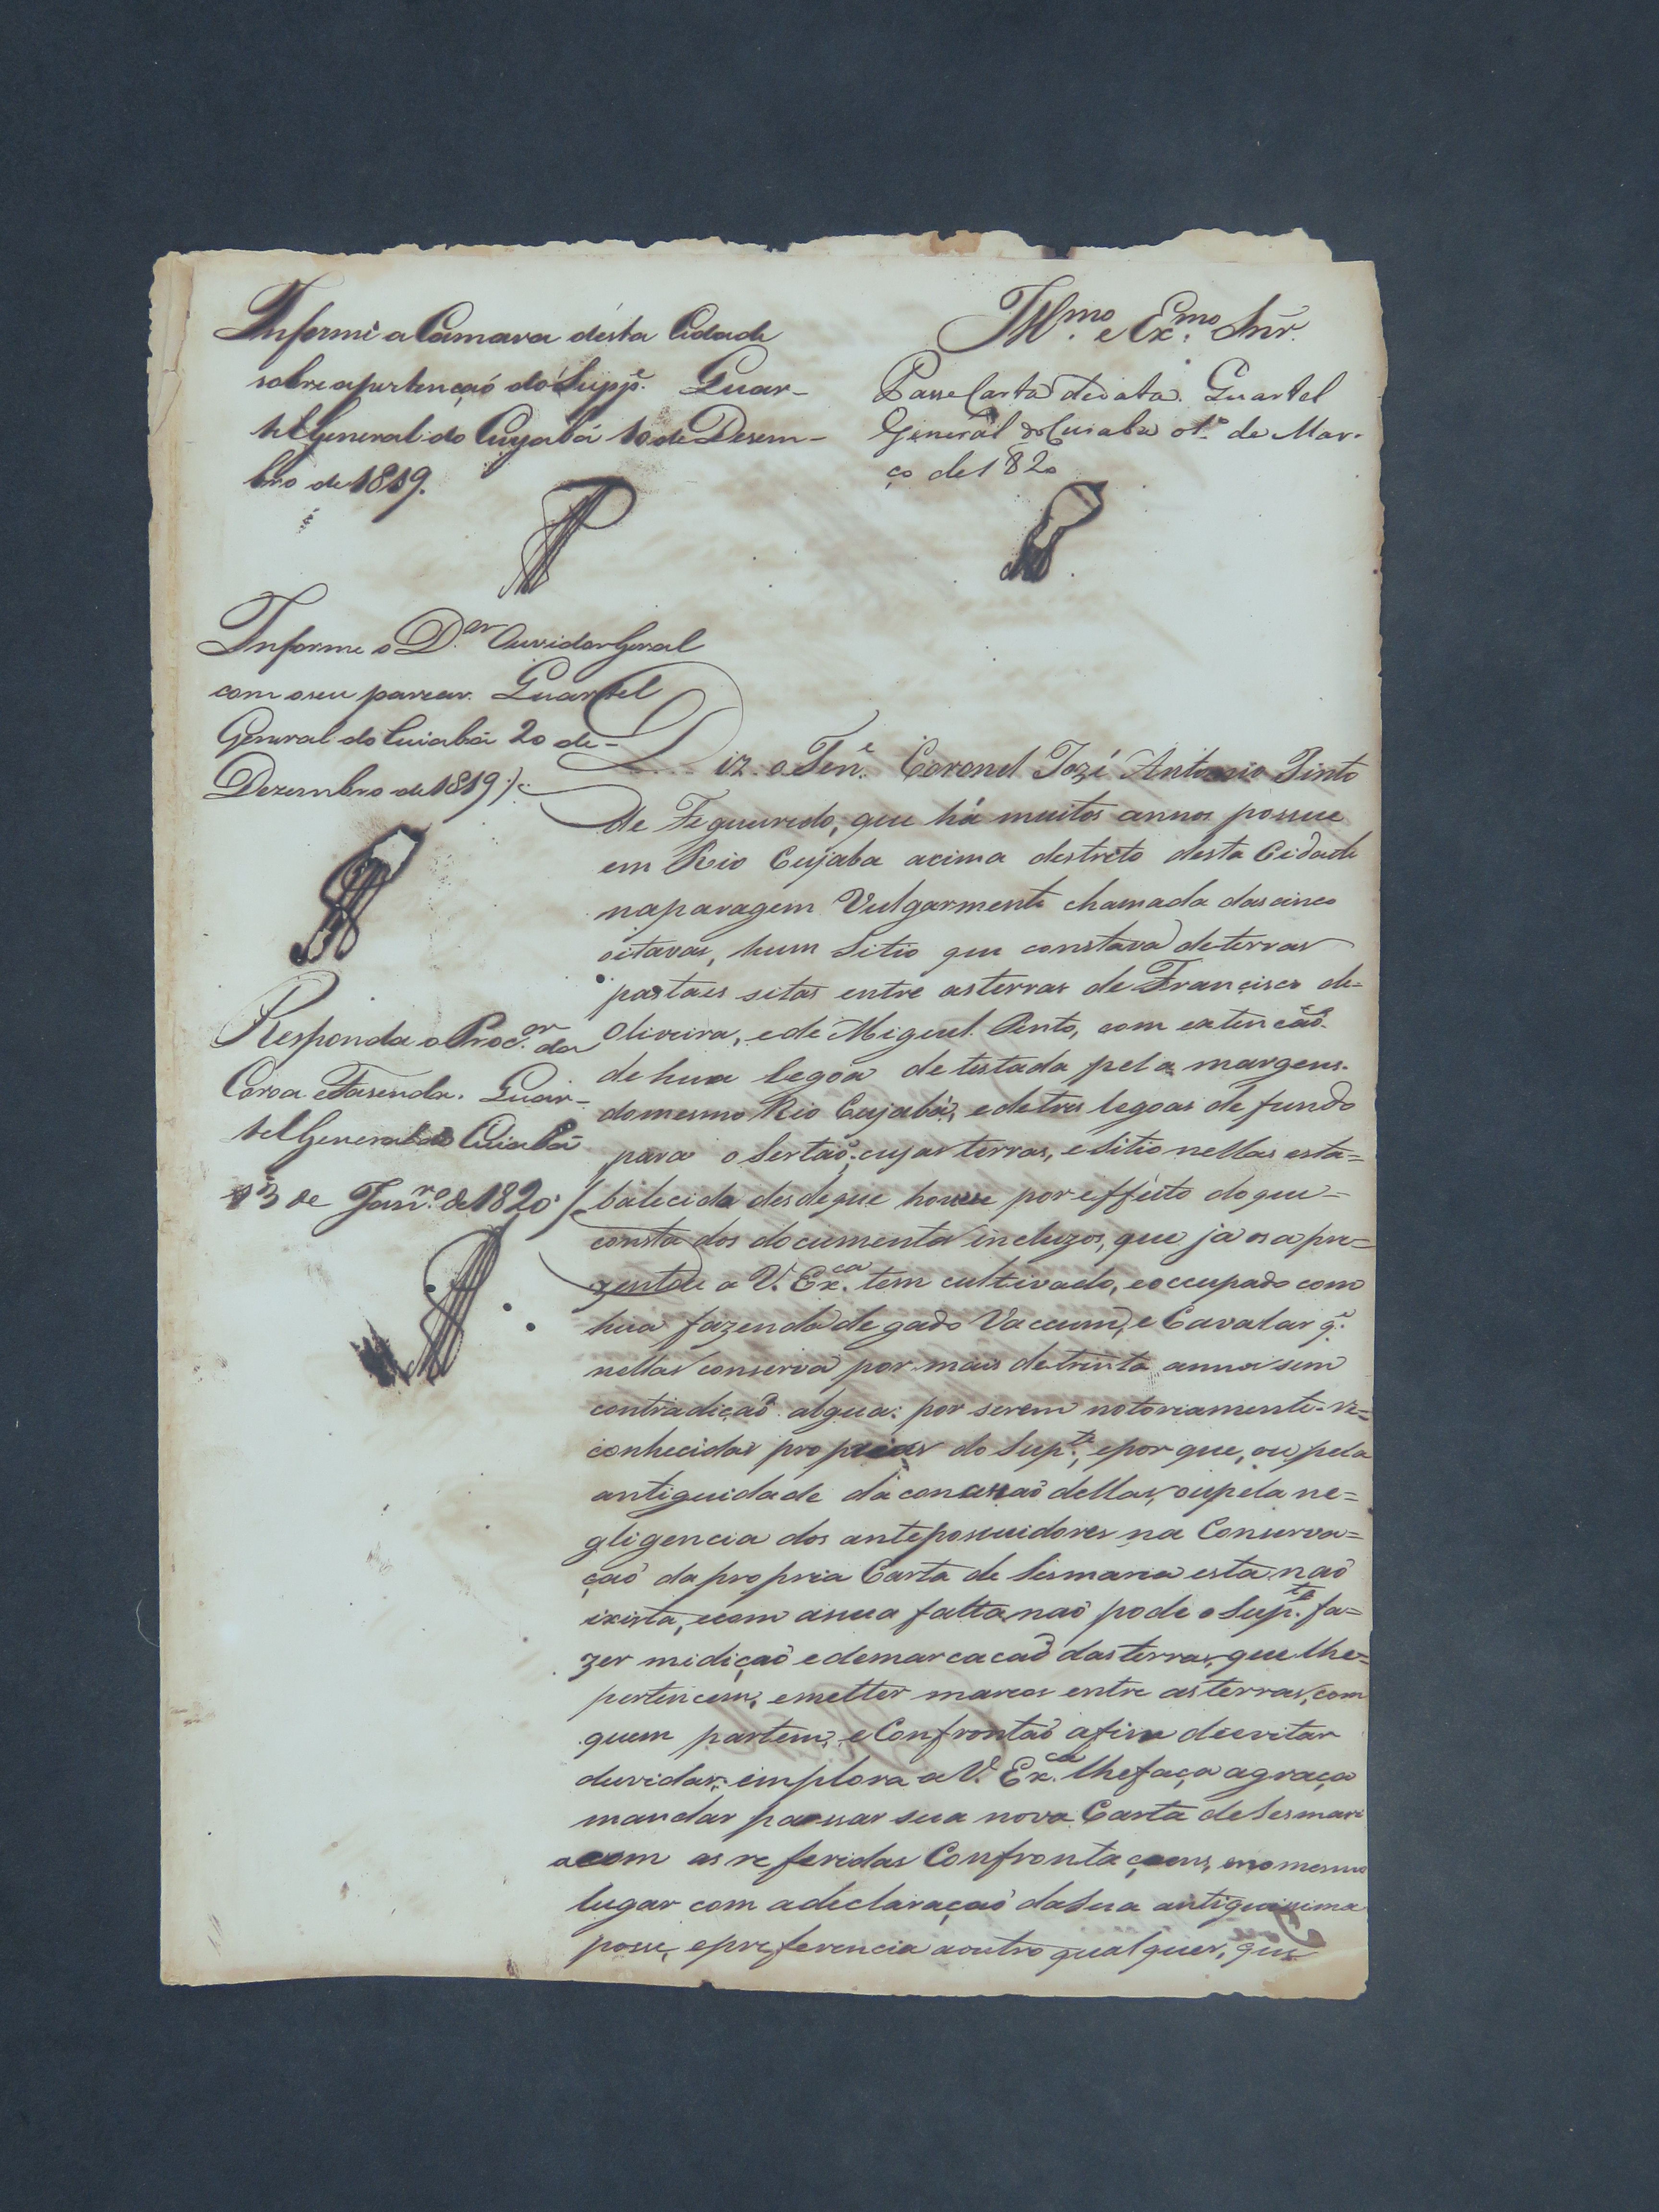 Informe a Camara désta Cidade
sobre apertençaõ do Supp.e Guar-
tel General do Cuyabá 10 de Dezem-
bro de 1819.
Ill.mo e Ex.mo Snr.
Passe Carta dedata. Guartel
General do Cuiaba 01.º de Mar-
ço de 1820
Informe o D.or Ouvidor Geral
com o seu parecer. Guartel
General do Cuiabá 20 de-
Dezembro de 1819
Responda o Proc.or da
Coroa e Fasenda. Guar-
tel General do Cuiabá
13 de Jan.ro de 1820
Diz o Ten.e Coronel Jozé Antonio Pinto
de Figueiredo, que há muitos annos possue
em Rio Cuyaba acima destricto desta Cidade
naparagem Vulgarmente chamada das cinco
oitavas, hum Sitio que constava deterras
pastaes sitas entre asterras de Francisco de=
Oliveira, ede Miguel Pinto, com extencaõ
dehuà legoa detestada pela margens.
domesmo Rio Cuyabá, edetres legoas de fundo
para o Sertaõ; cujas terras, eSitio nellas esta=
balecido desdeque houve por effeito do que=
consta dos documentos incluzos, que já os apre=
zentou a V. Ex.ca tem cultivado, eoccupado com
hua fazenda de gado Vaccum, e Cavalar q.e
nellas conserva por mais detrinta annos sem
contradiçaõ algua: por serem notoriamente re=
conhecidas proprias do Sup.te, epor que, ou pela
antiguidade da concessaõ dellas, oupela ne=
gligencia dos antepossuidores na Conserva=
çaõ da propria Carta de Sesmaria esta naõ
exista, ecom asua falta naõ pode o Sup.te fa=
zer midiçaõ edemarcacaõ dasterras, que lhe=
pertencem, emetter marcos entre asterras, com
quem partem, e Confrontaõ afim deevitar
duvidas; implora a V. Ex.ca lhefaça agraça
mandar passar sua nova Carta deSesmari
acom as referidas Confrontaçoens, enomesmo
lugar com adeclaraçaõ daSua antiguissima
posse, epreferencia aoutro qualquer, que